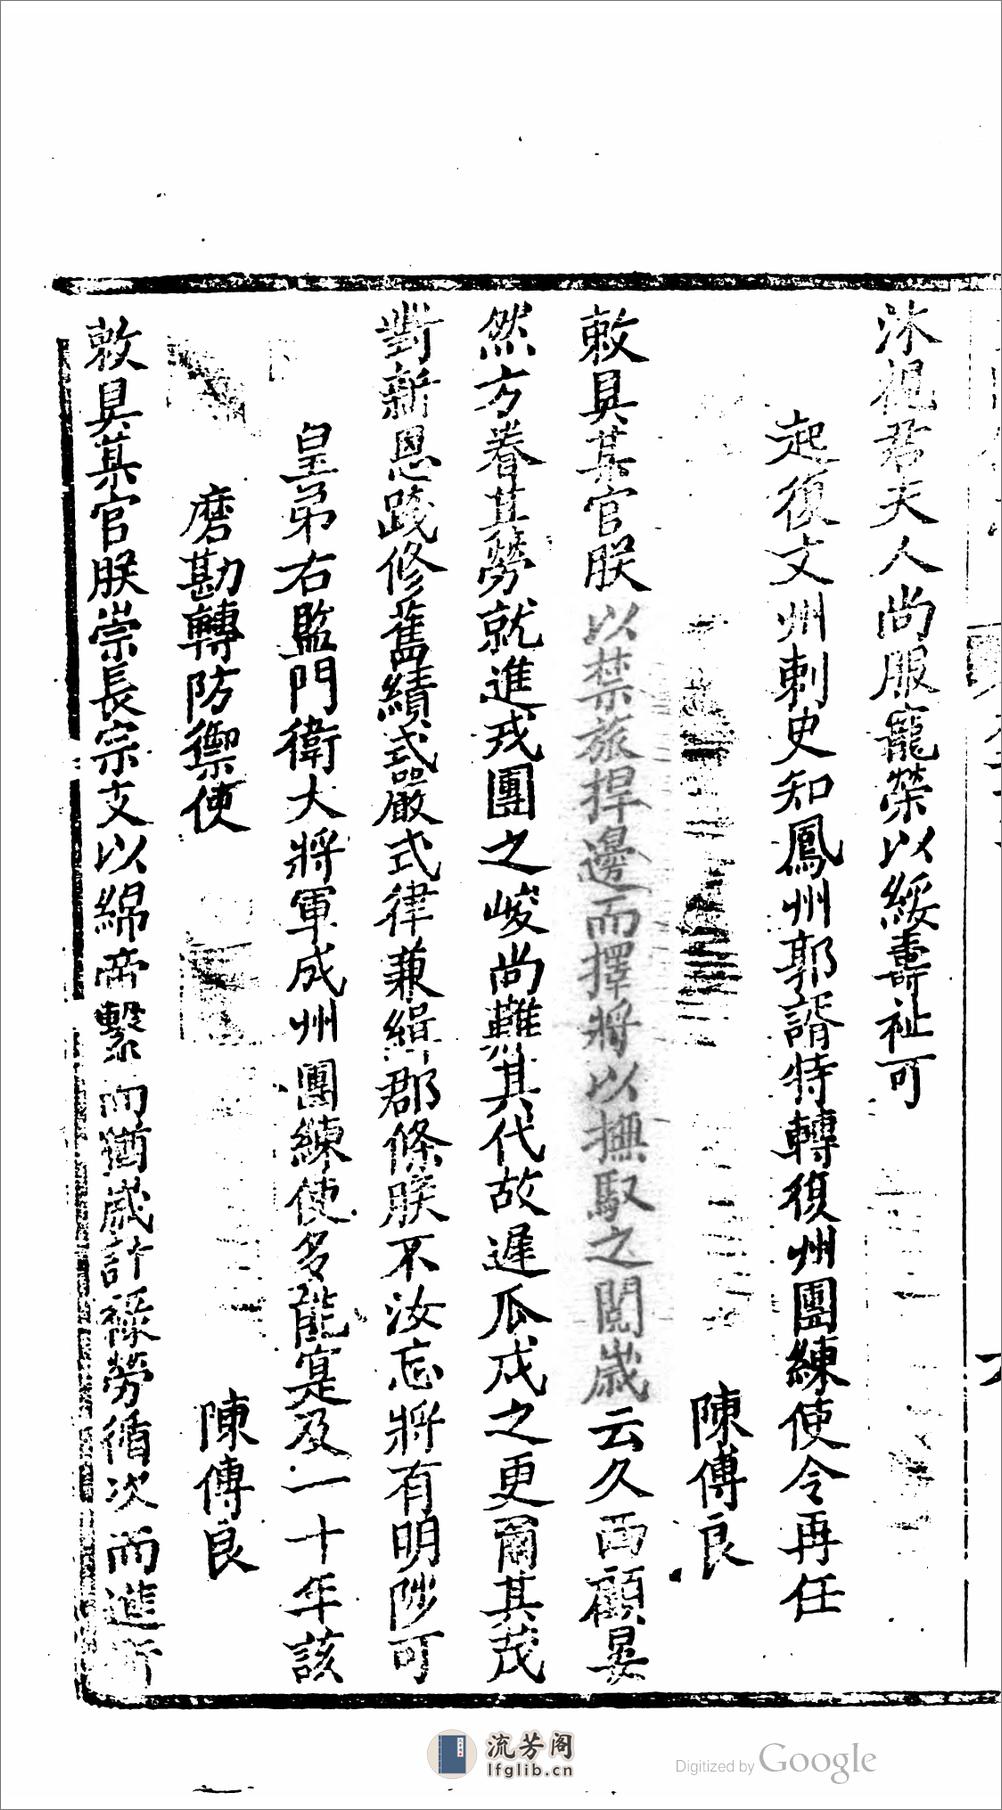 沐視君夫人尚服寵榮以綏壽祉可
起復文州刺史知鳳州郭諝特轉復州團練使令再任
陳傅良
敕具某官朕以禁旅捍邊而擇將以撫馭之閱歲云久西顧晏
然方眷其勞就進戎團之峻尚難其代故遲瓜戍之更爾其茂
對新恩踐修舊績式嚴武律兼緝郡條朕不汝忘將有明陟可
皇弟右監門衛大將軍成州團練使多能寔及一十年該
磨勘轉防禦使
陳傅良
敕具某官朕崇長宗支以綿帝繫而猶歲計祿勞循次而進所
流芳阁
lfglib.cn
Digitized by Google